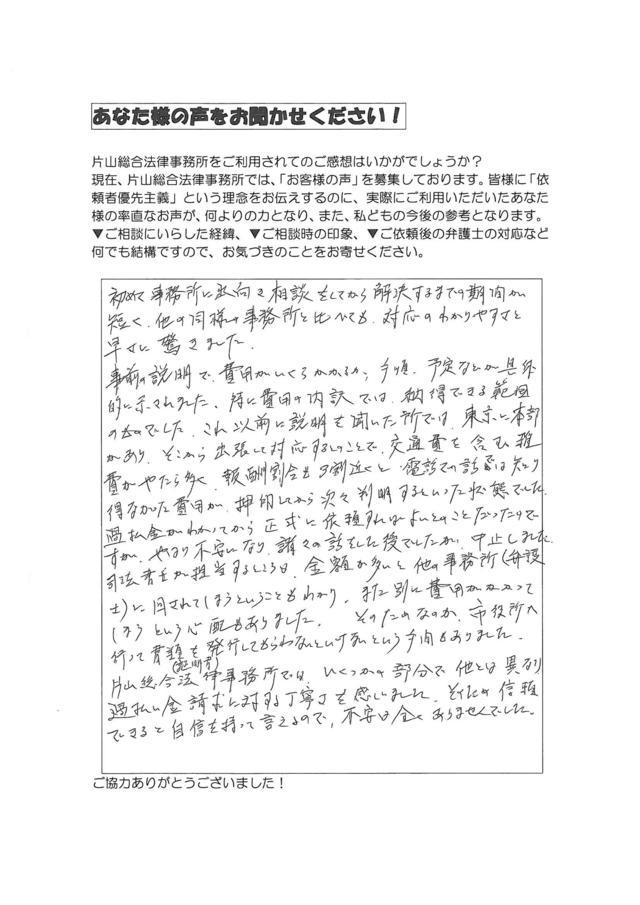 あなた様の声をお聞かせください！
片山総合法律事務所をご利用されてのご感想はいかがでしょうか？
現在、片山総合法律事務所では、「お客様の声」を募集しております。皆様に「依
頼者優先主義」という理念をお伝えするのに、実際にご利用いただいたあなた
様の率直なお声が、何よりの力となり、また、私どもの今後の参考となります。
▼ご相談にいらした経緯、▼ご相談時の印象、▼ご依頼後の弁護士の対応など
何でも結構ですので、お気づきのことをお寄せください。
初めて事務所に出向き相談をしてから解決するまでの期間が
短く、他の同様の事務所と比べても、対応のわかりやすさと
早さに驚きました。
事前の説明で、費用がいくらかかるか、手順、予定などが具体
的に示されました。特に費用の内訳では、納得できる範囲
のものでした。これ以前に説明を聞いた所では、東京に本部
があり、そこから出張して対応するとのことで、交通費を含む雑
費がやたら多く、報酬割合も3割近くと、電話での話では知り
得なかった費用が、押印してから次々判明するといった状態でした。
過払金がわかってから正式に依頼すればよいとのことだったので
すが、やはり不安になり、諸々の話をした後でしたが、中止しました。
司法書士が担当するところは、金額が多いと他の事務所（弁護
士）に回されてしまうということもわかり、また別に費用がかかって
しまうという心配もありました。そのためなのか、市役所へ
行って書類を発行してもらわないといけないという手間もありました。
（証明書）
片山総合法律事務所では、いくつかの部分で他とは異なり
過払い金請求に対する丁寧さを感じました。そのため信頼
できると自信を持って言えるので、不安は全くありませんでした。
ご協力ありがとうございました！